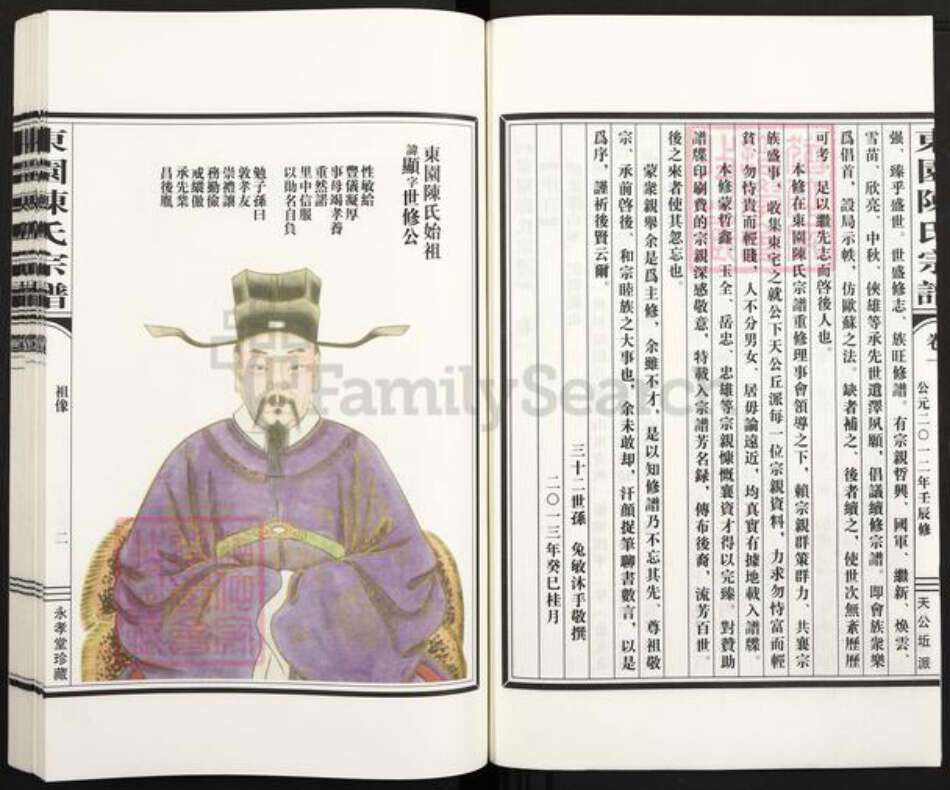 強、臻乎盛世。世盛修志、族旺修譜。有宗親哲興、國軍、繼新、煥雲、
雪苗、欣亮、中秋、俠雄等承先世遺澤夙願，倡議續修宗譜。即會族衆樂
爲倡首，設局示帙，仿歐蘇之法。缺者補之、後者續之，使世次無紊歷歷
可考　足以繼先志而啓後人也。
本修在東園陳氏宗譜重修理事會領導之下，賴宗親群策群力、共襄宗
族盛事，收集東宅之就公下天公丘派每一位宗親資料，力求勿恃富而輕
貧，勿恃貴而輕賤，人不分男女、居毋論遠近，均真實有據地載入譜牒。
本修蒙哲鑫、玉全、岳忠、忠雄等宗親慷慨襄資才得以完臻。對贊助
譜牒印刷費的宗親深感敬意，特載入宗譜芳名録，傳布後裔，流芳百世。
後之來者使其忽忘也。
蒙衆親舉余是爲主修，余雖不才，是以知修譜乃不忘其先、尊祖敬
宗、承前啓後、和宗睦族之大事也，余未敢却，汗顔捉筆聊書數言，以是
爲序，謹祈後賢云爾。
三十二世孫　兔敏沐手敬撰
二〇一三年癸巳桂月
東園陳氏宗譜
卷一
公元二〇一二年壬辰修
天公坵派
東園陳氏始祖
諱顯字世修公
性敏給
豐儀凝厚
事母竭孝養
重然諾
里中信服
以助名自負
勉子孫曰
敦孝友
崇禮讓
務勤儉
戒繼傲
承先業
昌後胤
東園陳氏宗譜
祖像
二
永孝堂珍藏
FamilySearch